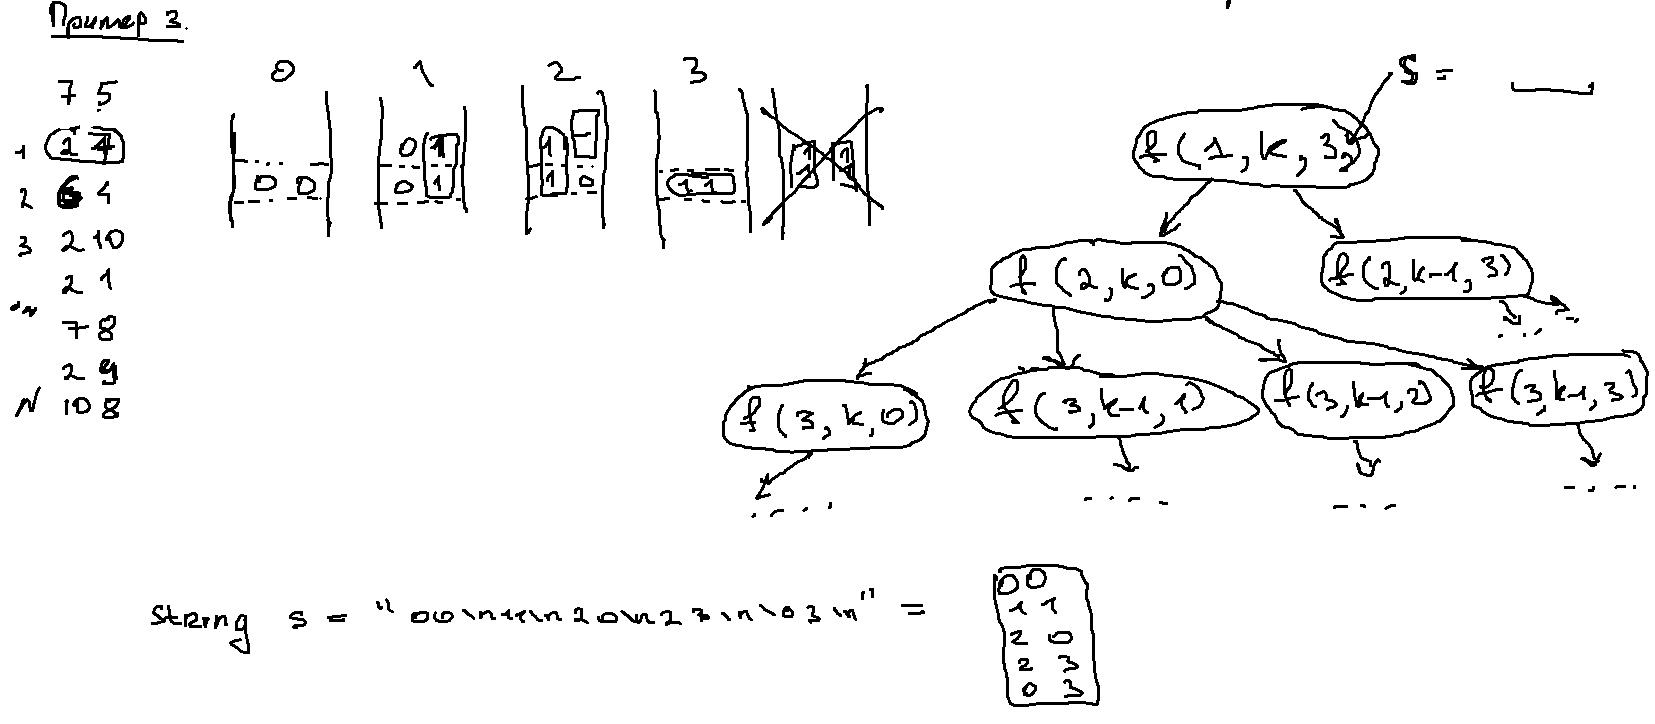 Пример 3.
7 5
1 2 4
2 6 4
3 2 10
2 1
7 8
2 9
N 10 8
0 1 2 3
0 0
0 1
0 1
1
1 0
1 1
S =
f(1, k, 3,)
f(2, k, 0) f(2, k-1, 3)
f(3, k, 0) f(3, k-1, 1) f(3, k-1, 2) f(3, k-1, 3)
String s = "00\n11\n20\n23\n\03\n" =
0 0
1 1
2 0
2 3
0 3